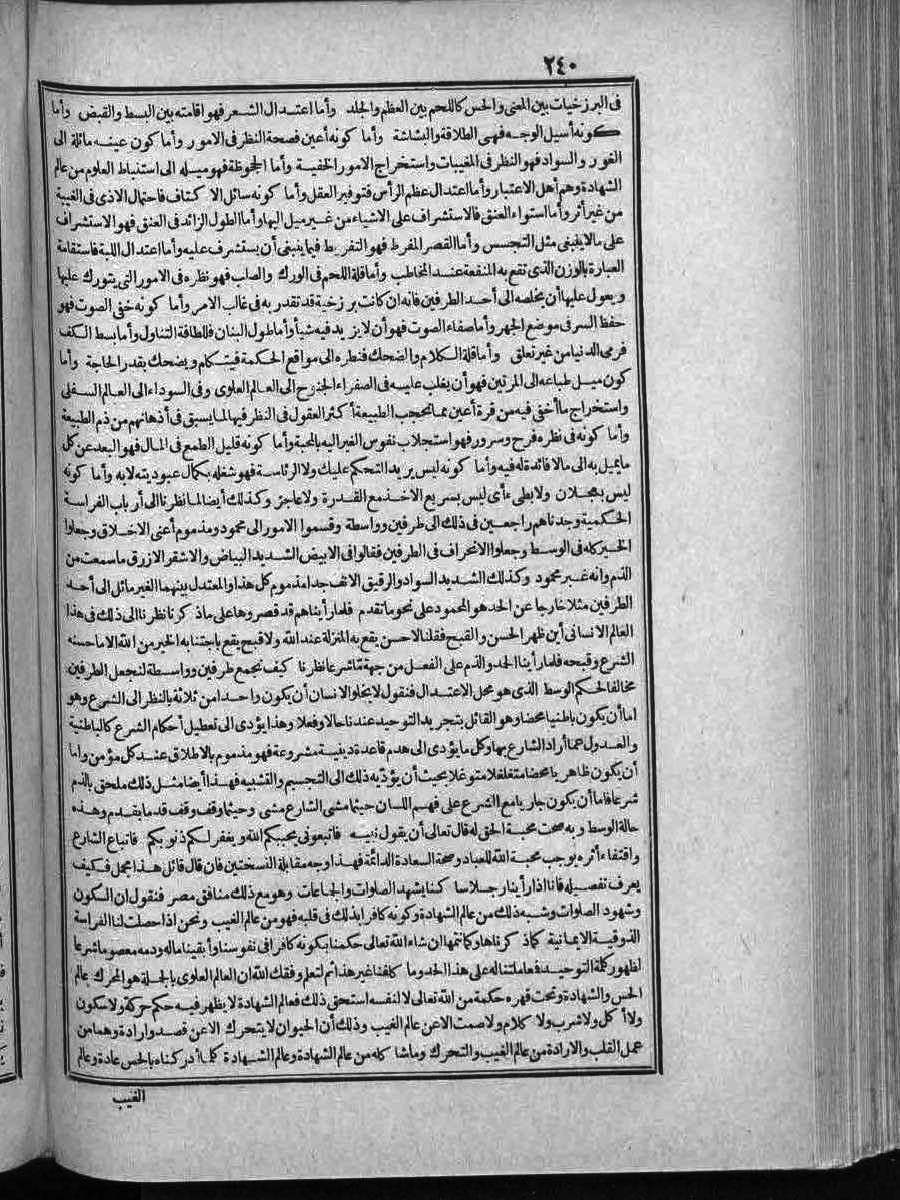 ٢٤٠
فى البرزخيات بين المعنى والحس كاللحم بين العظم والجلد وأما اعتدال الشعر فهو اقامته بين البسط والقبض وأما
كونه أسيل الوجه فهى الطلاقة والبشاشة وأما كونه أعين فصحة النظر فى الامور وأما كون عينه مائلة الى
الغور والسواد فهو النظر فى المغيبات واستخراج الامور الخفية وأما الجحوظة فهو ميله الى استنباط العلوم من عالم
الشهادة وهم أهل الاعتبار وأما اعتدال عظم الرأس فتوفير العقل وأما كونه سائل الاكتاف فاحتمال الاذى فى الغيبة
من غير أثر وأما استواء العنق فالاستشراف على الاشياء من غير ميل اليها وأما الطول الزائد فى العنق فهو الاستشراف
على مالا ينبغى مثل التجسس وأما القصر المفرط فهو التفريط فيما ينبغى أن يستشرف عليه وأما اعتدال اللبة فاستقامة
العبارة بالوزن الذى تقع به المنفعة عند المخاطب وأما قلة اللحم فى الورك والصلب فهو نظره فى الامور التى يتورك عليها
ويعول عليها أن يخلصه الى أحد الطرفين فانه ان كانت برزخية قد تقدر به فى غالب الامر وأما كونه خفى الصوت فهو
حفظ السر فى موضع الجهر وأما صفاء الصوت فهو أن لا يزيد فيه شيأ وأما طول البنان فللطافة التناول وأما بسط الكف
فرمى الدنيا من غير تعلق وأما قلة الكلام والضحك فنظره الى مواقع الحكمة فيتكلم ويضحك بقدر الحاجة وأما
كون ميل طباعه الى المرتين فهو أن يغلب عليه فى الصفراء الجنوح الى العالم العلوى وفى السوداء الى العالم السفلى
واستخراج ما أخفى فيه من قرة أعين مما يحجب الطبيعة أكثر العقول فى النظر فيها لما يسبق فى أذهانهم من ذم الطبيعة
وأما كونه فى نظره فرح وسرور فهو استجلاب نفوس الغير اليه بالمحبة وأما كونه قليل الطمع فى المال فهو البعد عن كل
ما يميل به الى مالا فائدة له فيه وأما كونه ليس يريد التحكم عليك ولا الرئاسة فهو شغله بكمال عبوديته لا به وأما كونه
ليس بعجلان ولا بطىء أى ليس بسريع الاخذ مع القدرة ولا عاجز وكذلك أيضا لما نظرنا الى أرباب الفراسة
الحكمية وجدناهم راجعين فى ذلك الى طرفين وواسطة وقسموا الامور الى محمود ومذموم أعنى الاخلاق وجعلوا
الخير كله فى الوسط وجعلوا الانحراف فى الطرفين فقالوا فى الابيض الشديد البياض والاشقر الازرق ما سمعت من
الذم وانه غير محمود وكذلك الشديد السواد والرقيق الانف جدا مذموم كل هذا والمعتدل بينهما الغير مائل الى أحد
الطرفين مثلا خارجا عن الحد هو المحمود على نحو ما تقدم فلما رأيناهم قد قصروها على ما ذكرنا نظرنا الى ذلك فى هذا
العالم الانسانى أين ظهر الحسن والقبح فقلنا لا حسن يقع به المنزلة عند الله ولا قبيح يقع باجتنابه الخير من الله الا ما حسنه
الشرع وقبحه فلما رأينا الحد والذم على الفعل من جهة ما شرعا نظرنا كيف نجمع طرفين وواسطة لنجعل الطرفين
مخالفا لحكم الوسط الذى هو محل الاعتدال فنقول لا يخلو الانسان أن يكون واحدا من ثلاثة بالنظر الى الشرع وهو
اما أن يكون باطنيا محضا وهو القائل بتجريد التوحيد عندنا حالا وفعلا وهذا يؤدى الى تعطيل أحكام الشرع كالباطنية
والعدول عما أراد الشارع بها وكل ما يؤدى الى هدم قاعدة دينية مشروعة فهو مذموم بالاطلاق عند كل مؤمن واما
أن يكون ظاهريا محضا متغلغلا متوغلا بحيث أن يؤديه ذلك الى التجسيم والتشبيه فهذا أيضا مثل ذلك ملحق بالذم
شرعا فاما أن يكون جاريا مع الشرع على فهم اللسان حيثما مشى الشارع مشى وحيثما وقف وقف قدما بقدم وهذه
حالة الوسط وبه صحت محبة الحق له قال تعالى أن يقول نبيه فاتبعونى يحببكم الله ويغفر لكم ذنوبكم فاتباع الشارع
واقتفاء أثره يوجب محبة الله للعباد وصحة السعادة الدائمة فهذا وجه مقابلة النسختين فان قال قائل هذا مجمل فكيف
يعرف تفصيله فانا اذا رأينا رجلا ساكنا يشهد الصلوات والجماعات وهو مع ذلك منافق مصر فنقول ان السكون
وشهود الصلوات وشبه ذلك من عالم الشهادة وكونه كافرا بذلك فى قلبه فهو من عالم الغيب ونحن اذا حصلت لنا الفراسة
الذوقية الايمانية كما ذكرناها وكما نتمها ان شاء الله تعالى حكمنا بكونه كافرا فى نفوسنا وأبقينا ماله ودمه معصوما شرعا
لظهور كلمة التوحيد فمعاملتنا له على هذا الحد وما كلفنا غير هذا ثم لتعلم وفقك الله ان العالم العلوى بالجملة هو المحرك عالم
الحس والشهادة وتحت قهره حكمة من الله تعالى لا لنفسه استحق ذلك فعالم الشهادة لا يظهر فيه حكم حركة ولا سكون
ولا أكل ولا شرب ولا كلام ولا صمت الا عن عالم الغيب وذلك أن الحيوان لا يتحرك الا عن قصد وارادة وهما من
عمل القلب والارادة من عالم الغيب والتحرك وما شاكله من عالم الشهادة وعالم الشهادة كلما أدركناه بالحس عادة وعالم
الغيب